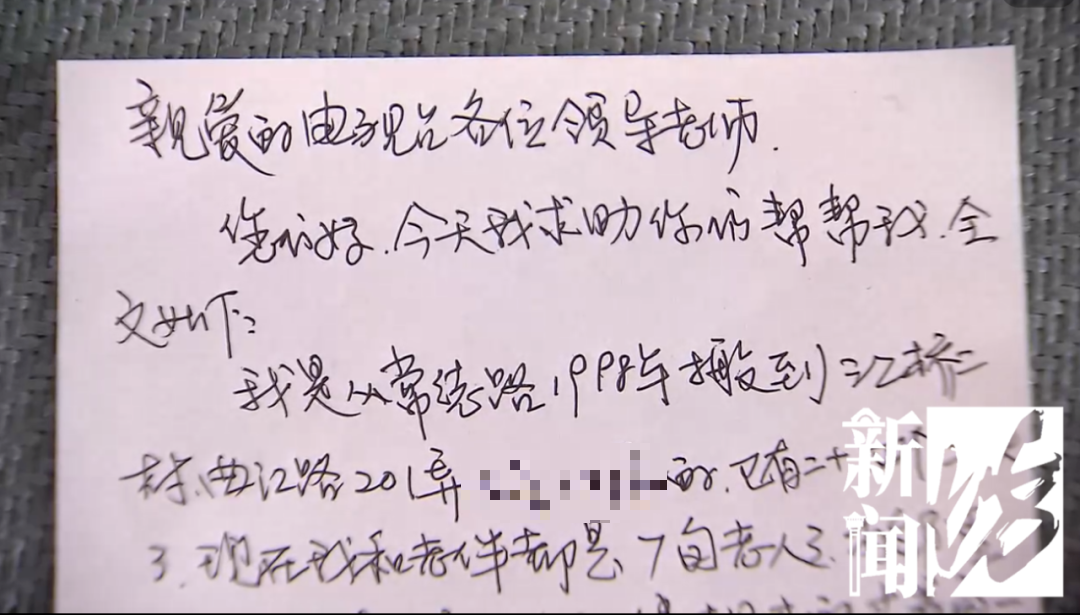 亲爱的电视台各位领导老师.
您们好.今天我求助你们帮帮我.全
文如下:
我是从常德路1998年搬到三江桥二
村.曲江路201弄 的.已有二十
3.现在我和老伴都是7旬老人了.
新闻